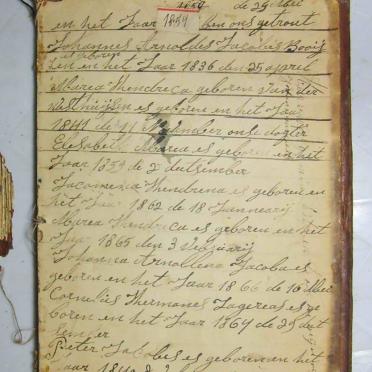 1859 de 29
en het Jaar 1859 ben ons getrout
Johannes Arnoldes Jacobus Booij
sen en het Jaar 1836 den 25 april
Marea Hendreca geboren van der
Westhuijsen es geboren en het Jaar
1841 de 11 November onse dogter
Elesabeth Marea es geboren en het
Jaar 1859 de 2 
Jacomena Hendrena es geboren en
het Jaar 1862 de 18 Janneary
Marea Hendreca es geboren en het
Jaar 1865 den 3 
Johanna Arnollena Jacoba es
geboren en het Jaar 1866 de 16
Cornelus Hermanes es ge
boren en het Jaar 1869 de 25

Peter Jacobes es geboren en het
Jaar